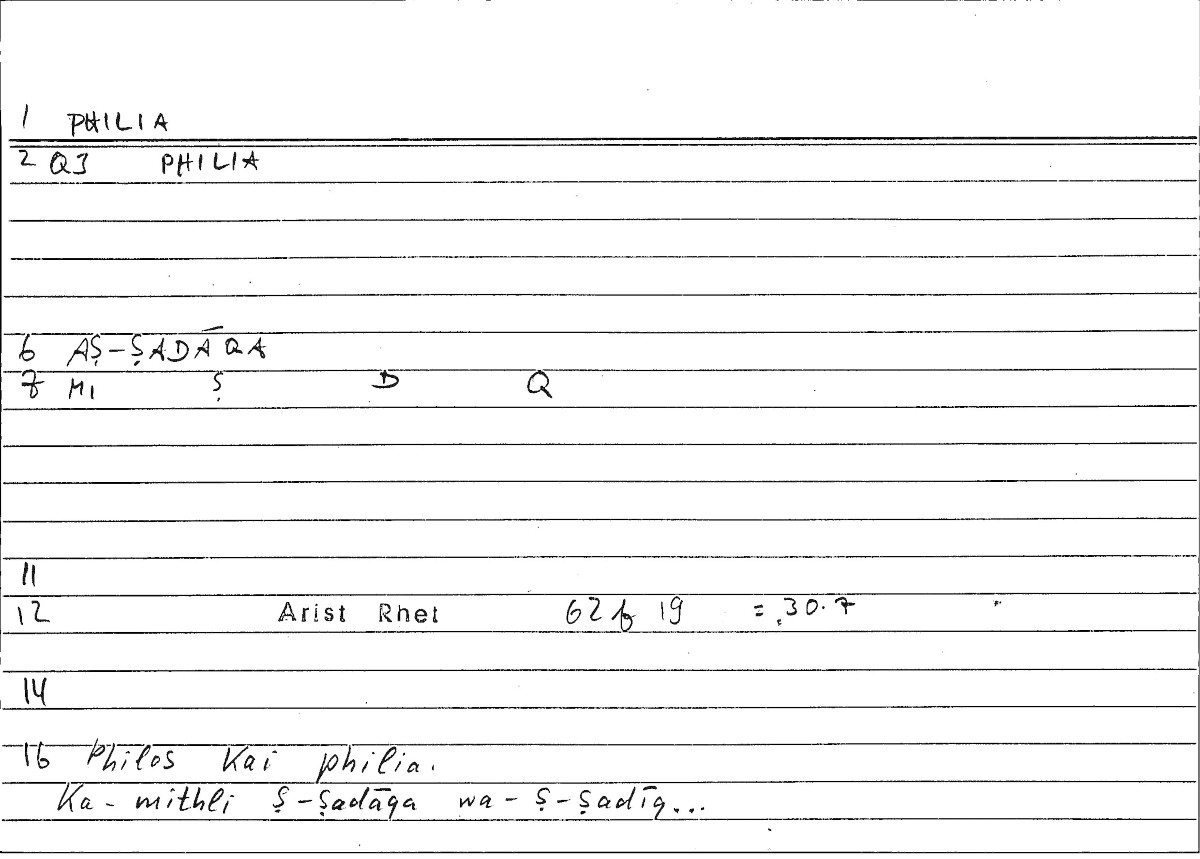 1 PHILIA
2 Q3 PHILIA
6 AṢ-ṢADĀQA
7 MI Ṣ D Q
11
12 Arist Rhet 62b 19 = 30.7
14
16 Philos kai philia.
Ka-mithli ṣ-ṣadāqa wa-ṣ-ṣadīq...